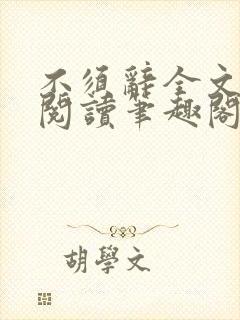 不須辭全文
閱讀筆趣閣
胡學文